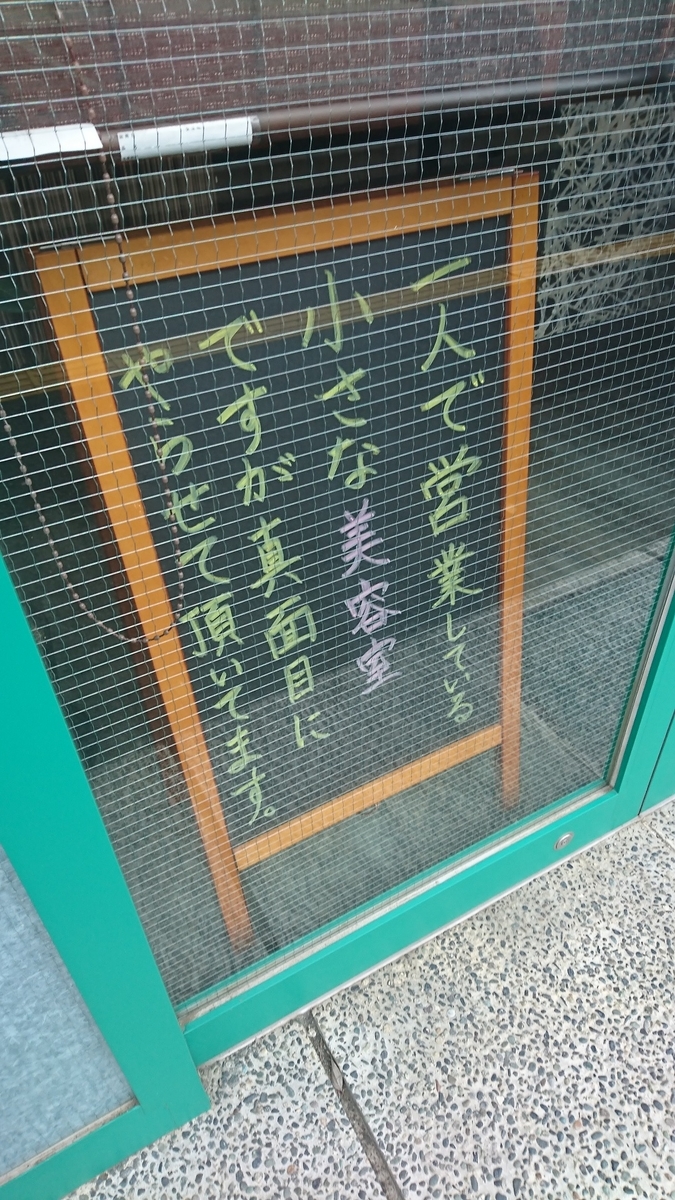 一人で営業している
小さな美容室
ですが真面目に
やらせて頂いてます。